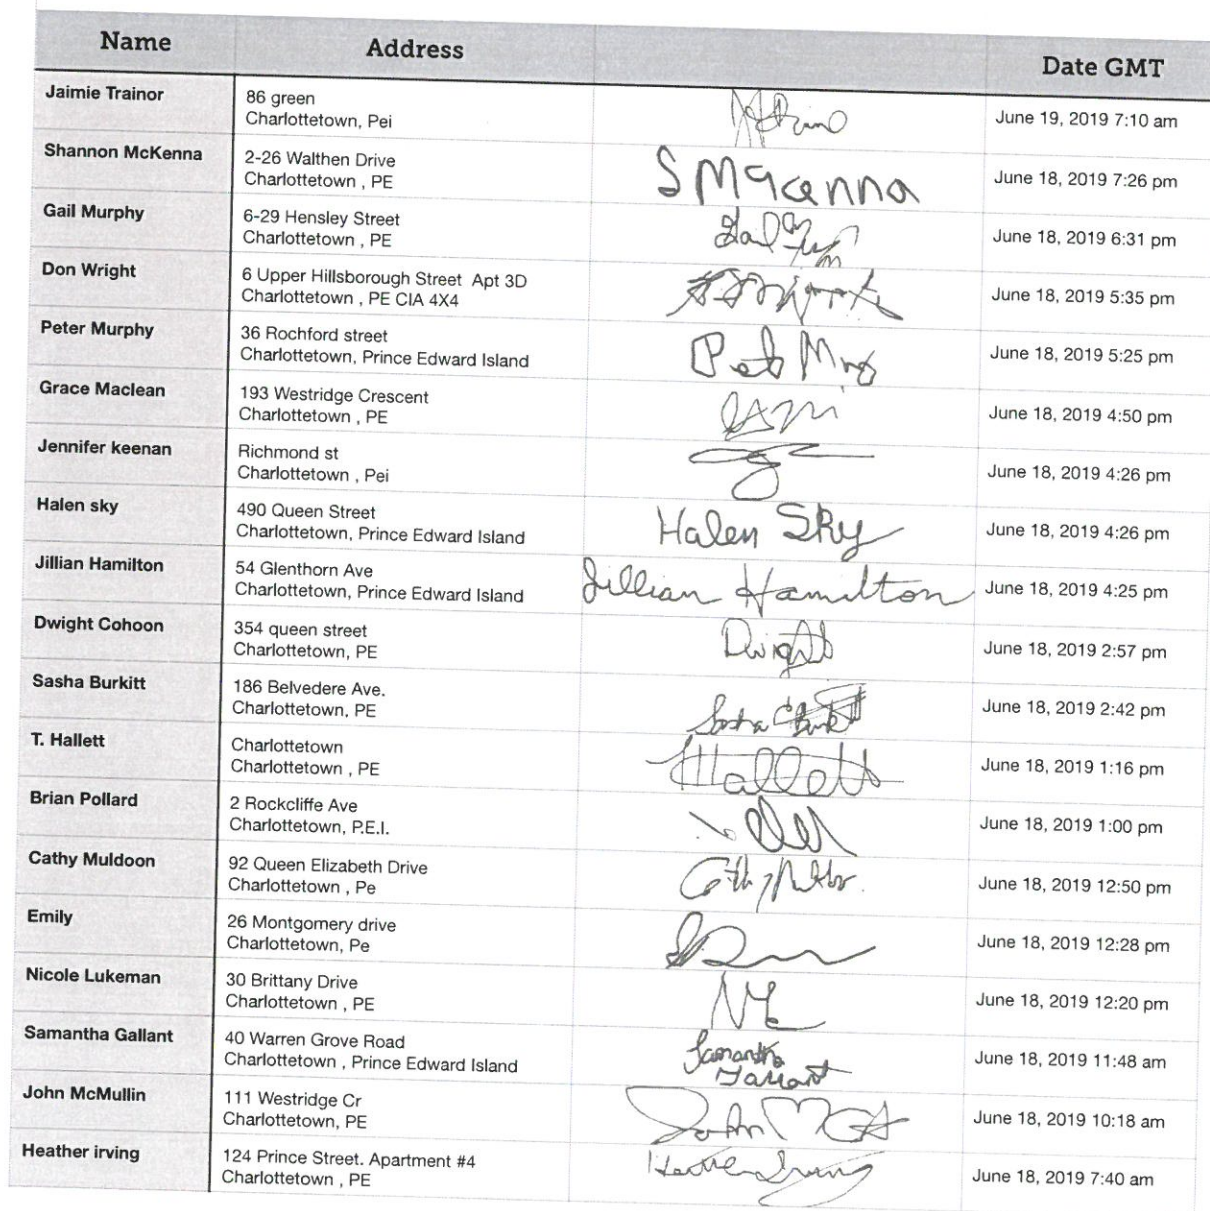 Name Address Date GMT
Jaimie Trainor
86 green
Charlottetown, Pei
June 19, 2019 7:10 am
Shannon McKenna
2-26 Walthen Drive
Charlottetown , PE
S McKenna
June 18, 2019 7:26 pm
Gail Murphy
6-29 Hensley Street
Charlottetown , PE
Gail
June 18, 2019 6:31 pm
Don Wright
6 Upper Hillsborough Street Apt 3D
Charlottetown , PE CIA 4X4
June 18, 2019 5:35 pm
Peter Murphy
36 Rochford street
Charlottetown, Prince Edward Island
June 18, 2019 5:25 pm
Grace Maclean
193 Westridge Crescent
Charlottetown , PE
June 18, 2019 4:50 pm
Jennifer keenan
Richmond st
Charlottetown , Pei
June 18, 2019 4:26 pm
Halen sky
490 Queen Street
Charlottetown, Prince Edward Island
Halen Sky
June 18, 2019 4:26 pm
Jillian Hamilton
54 Glenthorn Ave
Charlottetown, Prince Edward Island
Jillian Hamilton
June 18, 2019 4:25 pm
Dwight Cohoon
354 queen street
Charlottetown, PE
Dwight
June 18, 2019 2:57 pm
Sasha Burkitt
186 Belvedere Ave.
Charlottetown, PE
Sasha
June 18, 2019 2:42 pm
T. Hallett
Charlottetown
Charlottetown , PE
Hallett
June 18, 2019 1:16 pm
Brian Pollard
2 Rockcliffe Ave
Charlottetown, P.E.I.
June 18, 2019 1:00 pm
Cathy Muldoon
92 Queen Elizabeth Drive
Charlottetown , Pe
Cathy
June 18, 2019 12:50 pm
Emily
26 Montgomery drive
Charlottetown, Pe
June 18, 2019 12:28 pm
Nicole Lukeman
30 Brittany Drive
Charlottetown , PE
June 18, 2019 12:20 pm
Samantha Gallant
40 Warren Grove Road
Charlottetown , Prince Edward Island
Samantha
Gallant
June 18, 2019 11:48 am
John McMullin
111 Westridge Cr
Charlottetown, PE
John
June 18, 2019 10:18 am
Heather irving
124 Prince Street. Apartment #4
Charlottetown , PE
Heather Irving
June 18, 2019 7:40 am